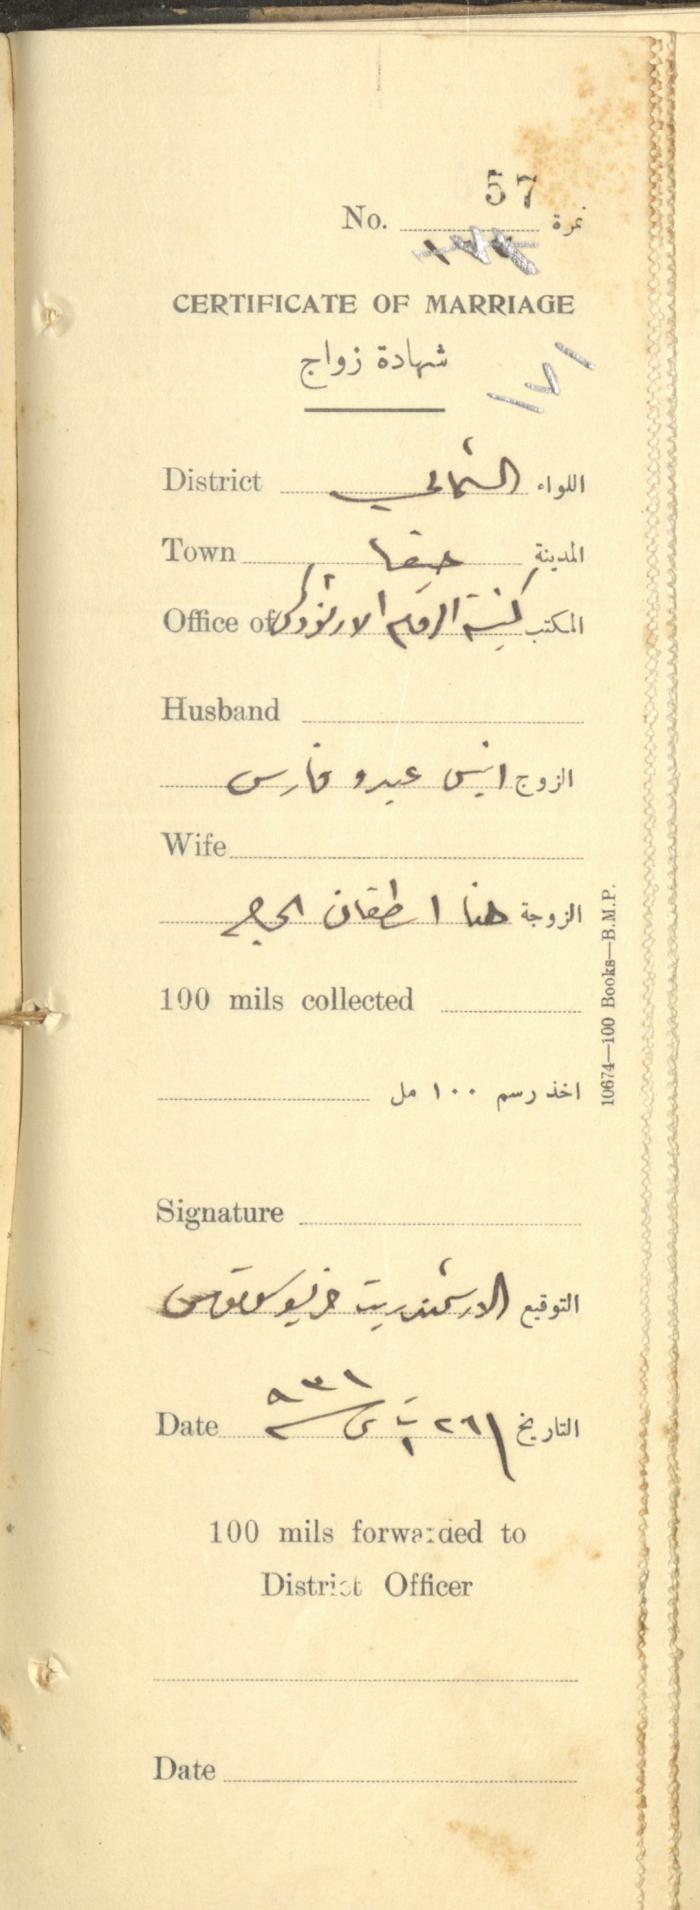 57
No. نمرة
CERTIFICATE OF MARRIAGE
شهادة زواج
١٧١
District الشمالي اللواء
Town حيفا المدينة
Office of المكتب كنيسة الروم الارثوذكس
Husband
الزوج انيس عبدو فارس
Wife
الزوجة هنا اسطفان
100 mils collected
اخذ رسم ١٠٠ مل
10674—100 Books—B.M.P.
Signature
التوقيع الارشمندريت
Date التاريخ ٢٦ ت١ سنة ٩٣١
100 mils forwarded to
District Officer
Date